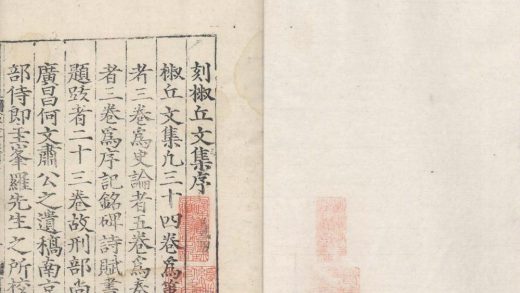 刻椒丘文集序
椒丘文集凡三十四卷為策
者三卷為史論者五卷為奏
者三卷為序記銘碑詩賦書
題跋者二十三卷故刑部尚
廣昌何文肅公之遺槁南京
部侍郎圭峯羅先生之所校